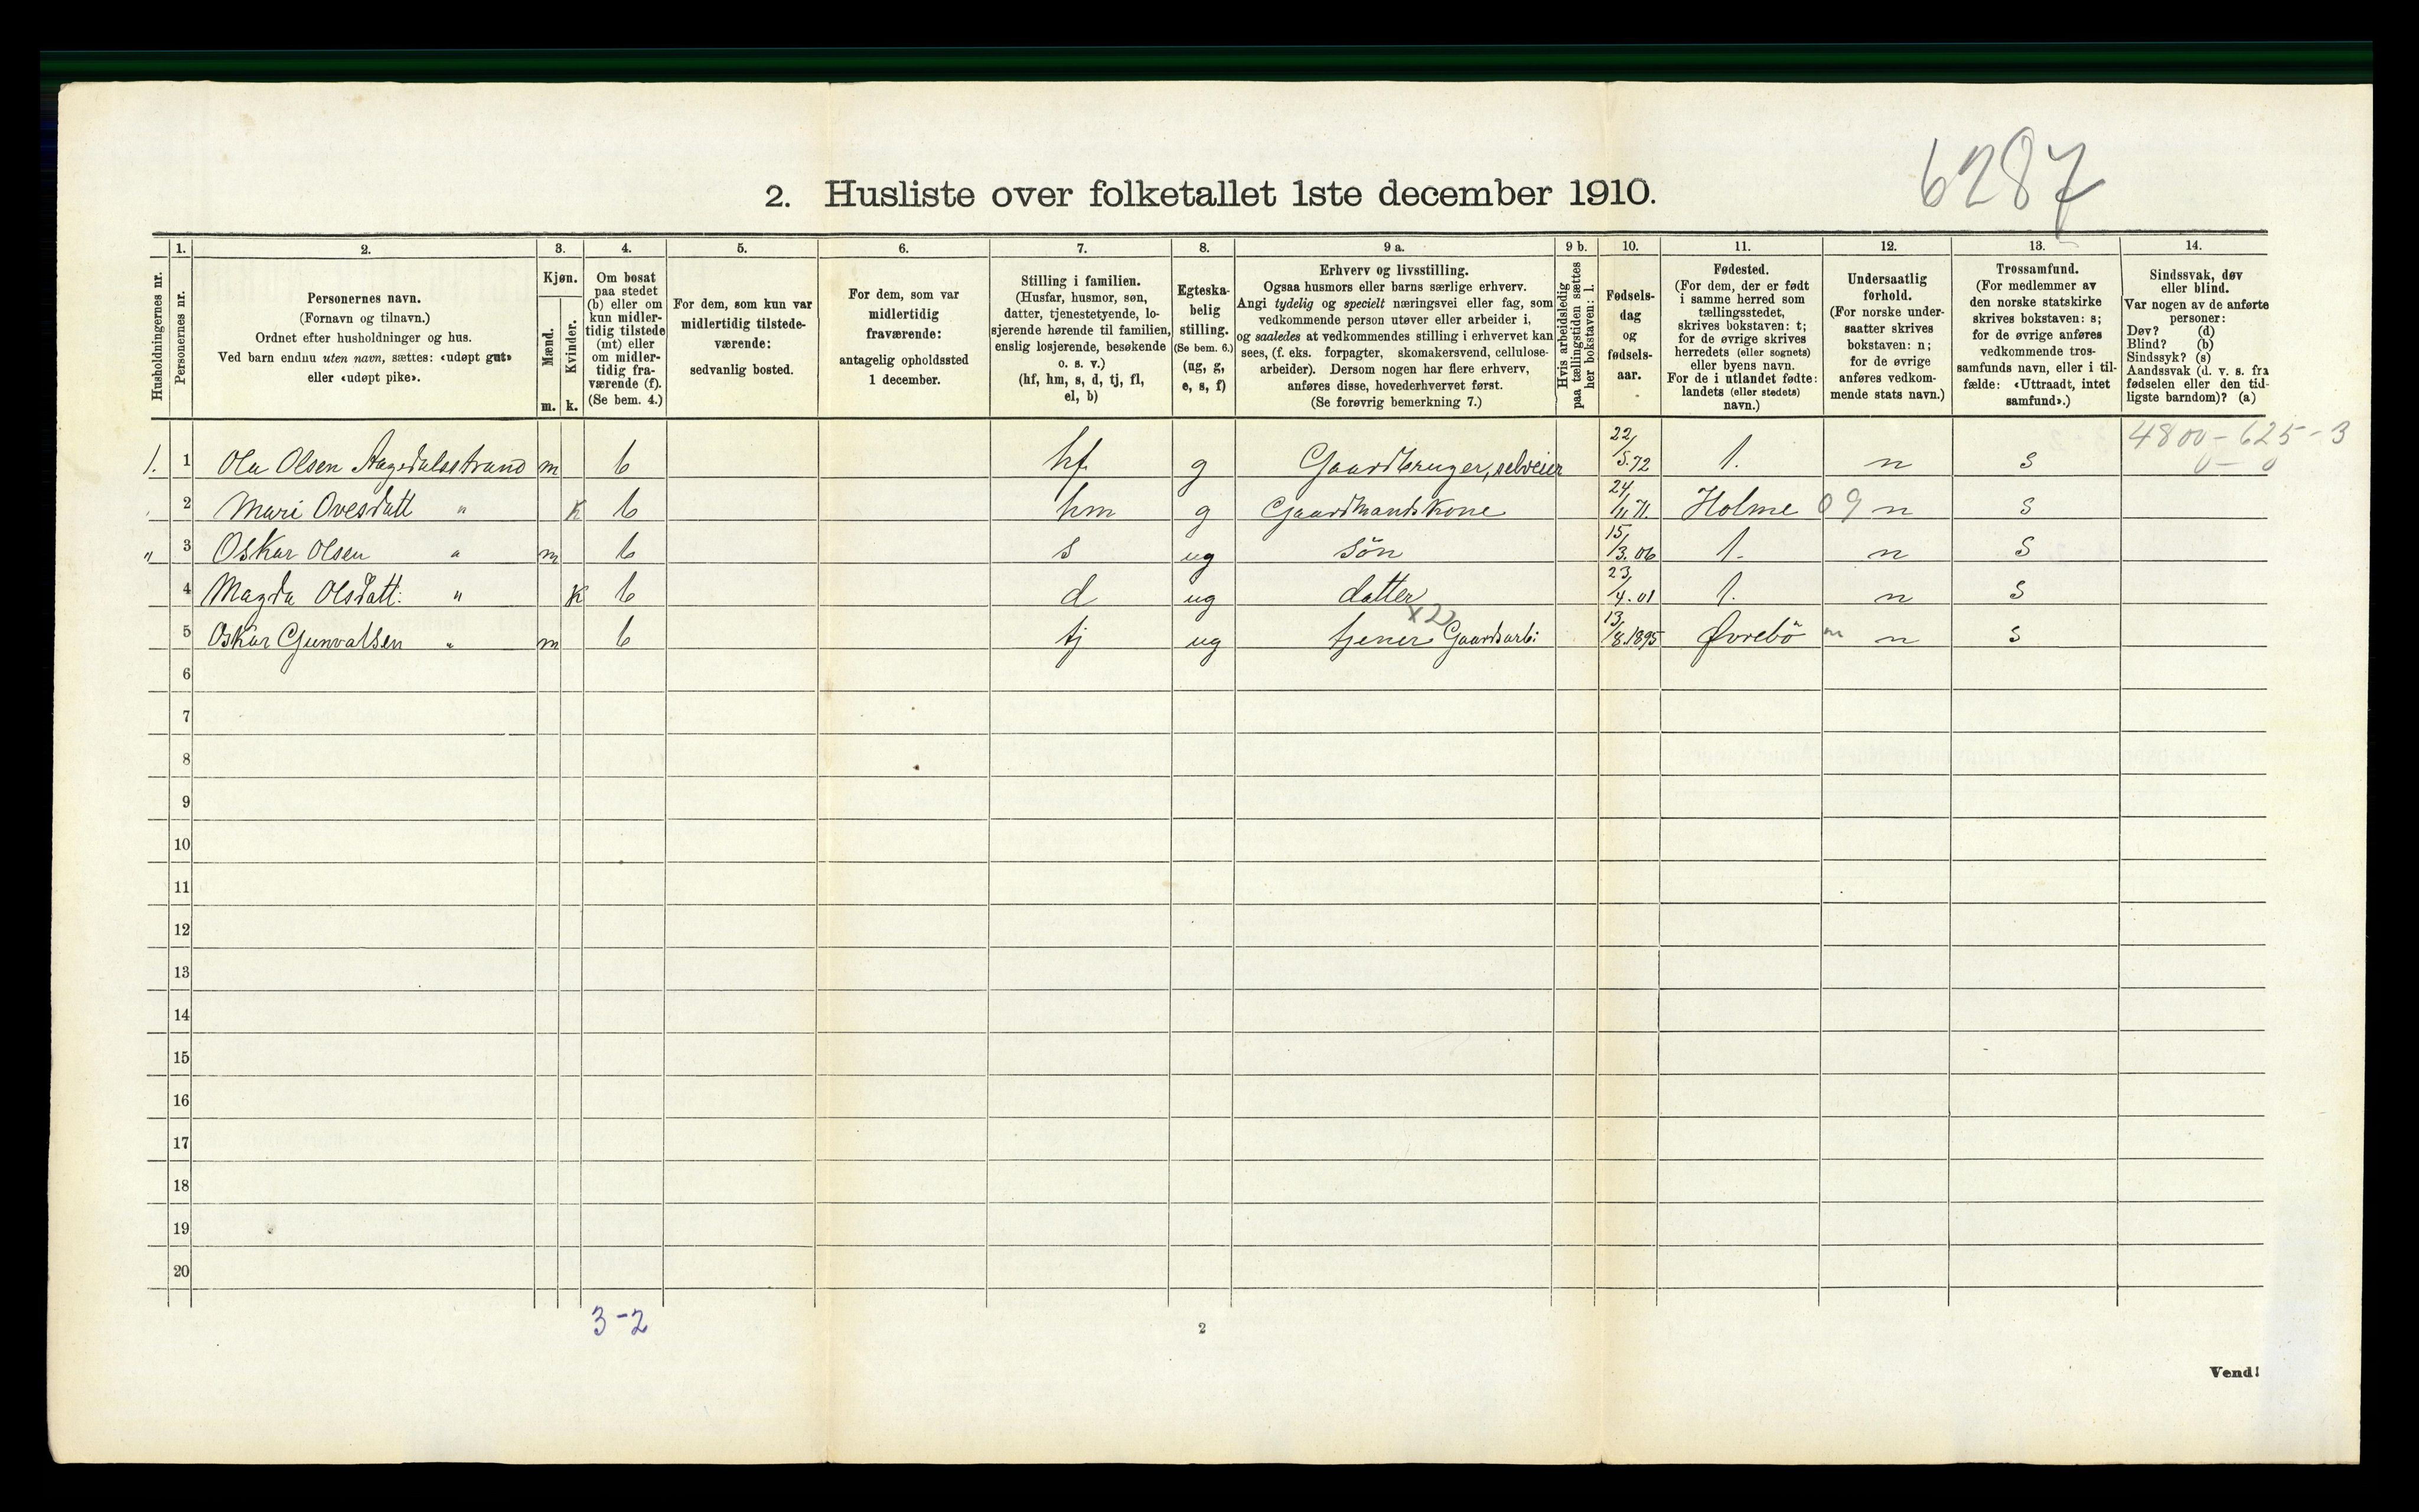 6287
2. Husliste over folketallet 1ste december 1910.
Husholdningernes nr.
1.
Personernes nr.
2.
Personernes navn.
(Fornavn og tilnavn.)
Ordnet efter husholdninger og hus.
Ved barn endnu uten navn, sættes: «udøpt gut»
eller «udøpt pike».
3.
Kjøn.
Mænd.
m.
Kvinder.
k.
4.
Om bosat
paa stedet
(b) eller om
kun midler-
tidig tilstede
(mt) eller
om midler-
tidig fra-
værende (f).
(Se bem. 4.)
5.
For dem, som kun var
midlertidig tilstede-
værende:
sedvanlig bosted.
6.
For dem, som var
midlertidig
fraværende:
antagelig opholdssted
1 december.
7.
Stilling i familien.
(Husfar, husmor, søn,
datter, tjenestetyende, lo-
sjerende hørende til familien,
enslig losjerende, besøkende
o. s. v.)
(hf, hm, s, d, tj, fl,
el, b)
8.
Egteska-
belig
stilling.
(Se bem. 6.)
(ug, g,
e, s, f)
9 a.
Erhverv og livsstilling.
Ogsaa husmors eller barns særlige erhverv.
Angi tydelig og specielt næringsvei eller fag, som
vedkommende person utøver eller arbeider i,
og saaledes at vedkommendes stilling i erhvervet kan
sees, (f. eks. forpagter, skomakersvend, cellulose-
arbeider). Dersom nogen har flere erhverv,
anføres disse, hovederhvervet først.
(Se forøvrig bemerkning 7.)
9 b.
Hvis arbeidsledig
paa tællingstiden sættes
her bokstaven: l.
10.
Fødsels-
dag
og
fødsels-
aar.
11.
Fødested.
(For dem, der er født
i samme herred som
tællingsstedet,
skrives bokstaven: t;
for de øvrige skrives
herredets (eller sognets)
eller byens navn.
For de i utlandet fødte:
landets (eller stedets)
navn.)
12.
Undersaatlig
forhold.
(For norske under-
saatter skrives
bokstaven: n;
for de øvrige
anføres vedkom-
mende stats navn.)
13.
Trossamfund.
(For medlemmer av
den norske statskirke
skrives bokstaven: s;
for de øvrige anføres
vedkommende tros-
samfunds navn, eller i til-
fælde: «Uttraadt, intet
samfund».)
14.
Sindssvak, døv
eller blind.
Var nogen av de anførte
personer:
Døv? (d)
Blind? (b)
Sindssyk? (s)
Aandssvak (d. v. s. fra
fødselen eller den tid-
ligste barndom)? (a)
4800 - 625 - 3
0 - 0
1. 1 Ola Olsen Aagedalsstrand m b hf g Gaardbruger, selveier 22/5.72 1. n s
2 Mari Ovesdatt " k b hm g Gaardmandskone 24/11.71. Holme 09 n s
" 3 Oskar Olsen " m b s ug søn 15/3.06 1. n s
4 Magda Olsdatt: " k b d ug datter 23/4.01 1. n s
x22
5 Oskar Gunvalsen " m b tj ug tjener Gaardsarb: 13/8.1895 Øvrebö n s
6
7
8
9
10
11
12
13
14
15
16
17
18
19
20
3-2
2
Vend!